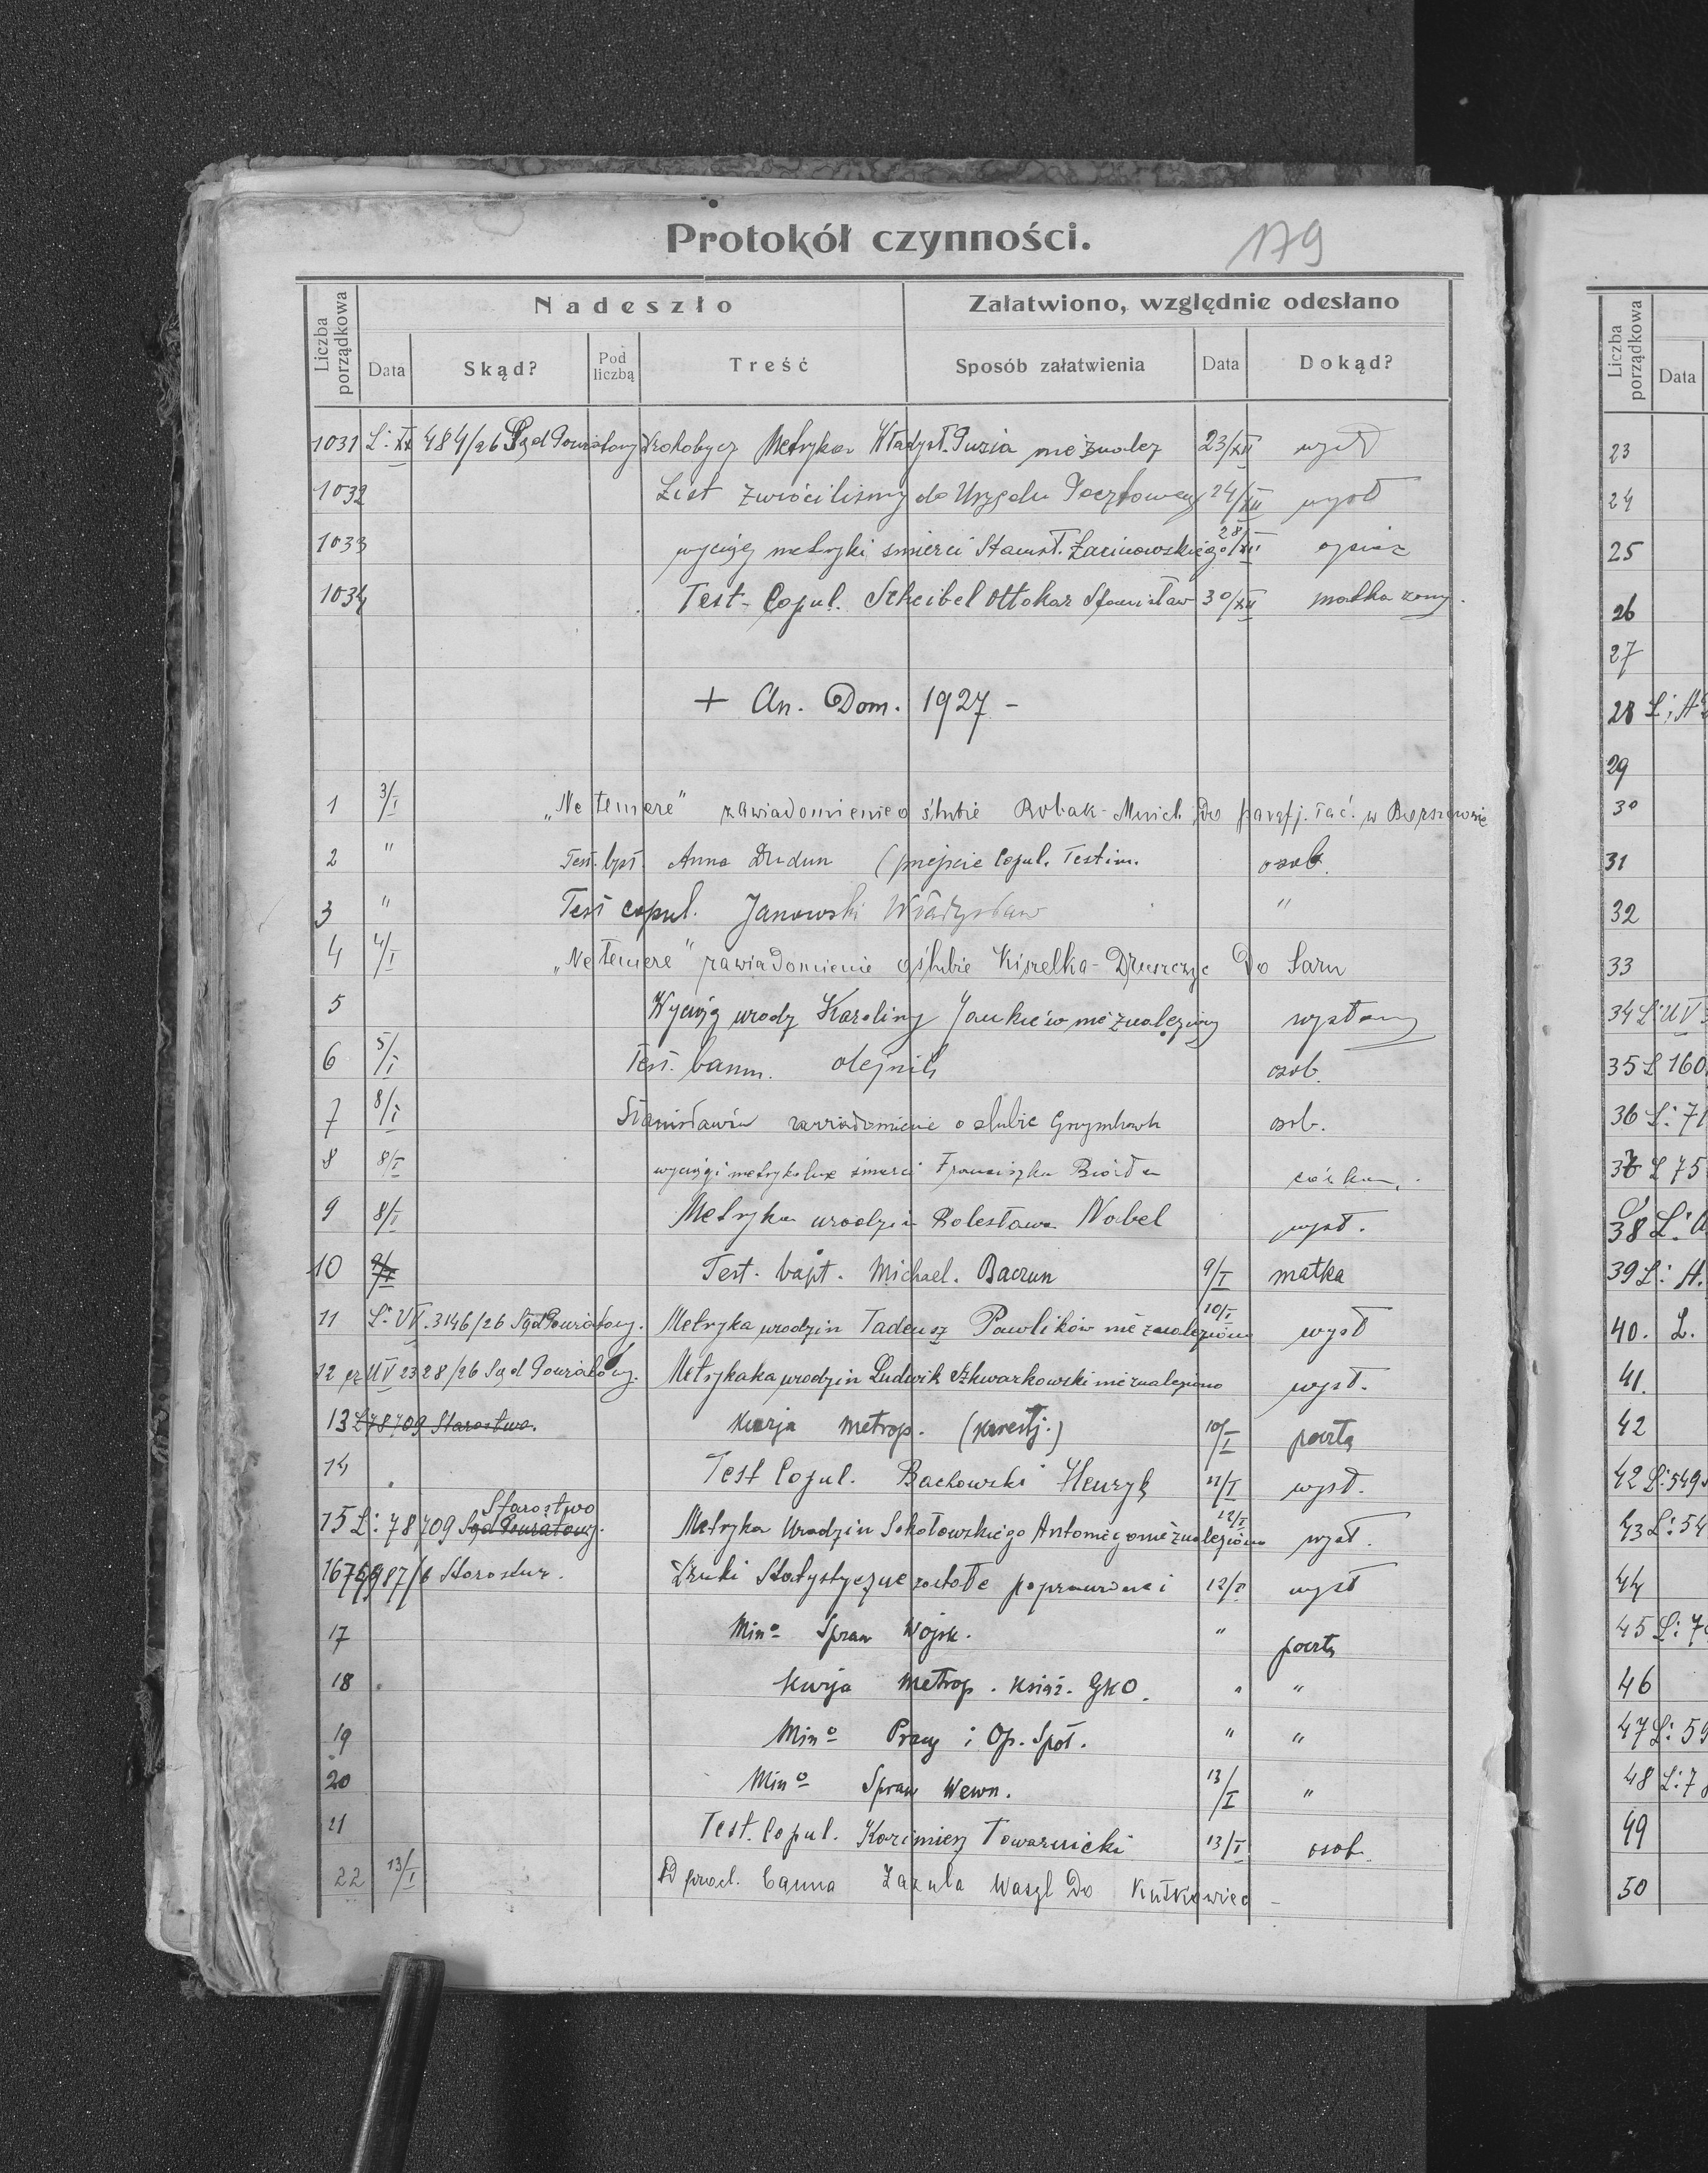 Protokół czynności.
179
Liczba porządkowa
Nadeszło
Załatwiono, względnie odesłano
Data
Skąd?
Pod liczbą
Treść
Sposób załatwienia
Data
Dokąd?
1031 L: XX 484/26 Sąd Powiatowy Drohobycz Metryka Władysł. Puzia nie znalez 23/XII wysł
1032 List zwróciliśmy do Urzędu Pocztowego 24/XII wysł
1033 wyciąg metryki śmierci Stanisł. 28/XII ojciec
1034 Test. Copul. Scheibel Ottokar Stanisław 30/XII matka żony.
+ An. Dom. 1927 -
1 3/I „Ne temere" zawiadomienie o ślubie Robak - Do parafj. łać. w Borszczowie
2 " Test. bpt. Anna Dudun (Copul. Testim. osob.
3 " Test copul. Janowski Władysław "
4 4/I „Ne temere" zawiadomienie o ślubie Kiszelka - Do Sarn
5 Wyciąg urodz Karoliny nie znaleziony wysłany
6 5/I Test. bann. Olejnik osob.
7 8/I Stanisławów zawiadomienie o ślubie osob.
8 8/I śmierci Franciszka córka.
9 8/I Metryka urodzin Bolesława Nabel wysł.
10 9/I Test. bapt. Michael. Baczun 9/I matka
11 L: VI. 3146/26 Sąd Powiatowy. Metryka urodzin Tadeusz Pawlików nie znaleziono 10/I wysł
12 UV 2328/26 Sąd Powiatowy. Metrykaka urodzin Ludwik nie znaleziono wysł.
13 L 78709 Starostwo. Kurja metrop. 10/I pocztą
14 Test Copul. Bachowski Henryk 11/I wysł.
Starostwo
15 L: 78709 Sąd Powiatowy. Metryka Urodzin Sokołowskiego Antoniego nie znaleziono 12/I wysł.
16 Druki Statystyczne 12/I wysł
17 Mino Spraw Wojsk. " pocztą
18 Kurja metrop. Książ. GKO. " "
19 Mino Pracy i Op. Społ. " "
20 Mino Spraw Wewn. 13/I "
21 Test. Copul. Kazimierz Towarnicki 13/I osob.
22 13/I Zazula Wasyl Do Kutkowiec -
Liczba porządkowa
Data
23
24
25
26
27
28 L:
29
30
31
32
33
34 L: UV
35 L 160
36 L: 71
37 L 75
38 L:
39 L: A.
40. L.
41.
42
42 L: 549
43 L: 54
44
45 L: 7
46
47 L: 59
48 L: 7
49
50